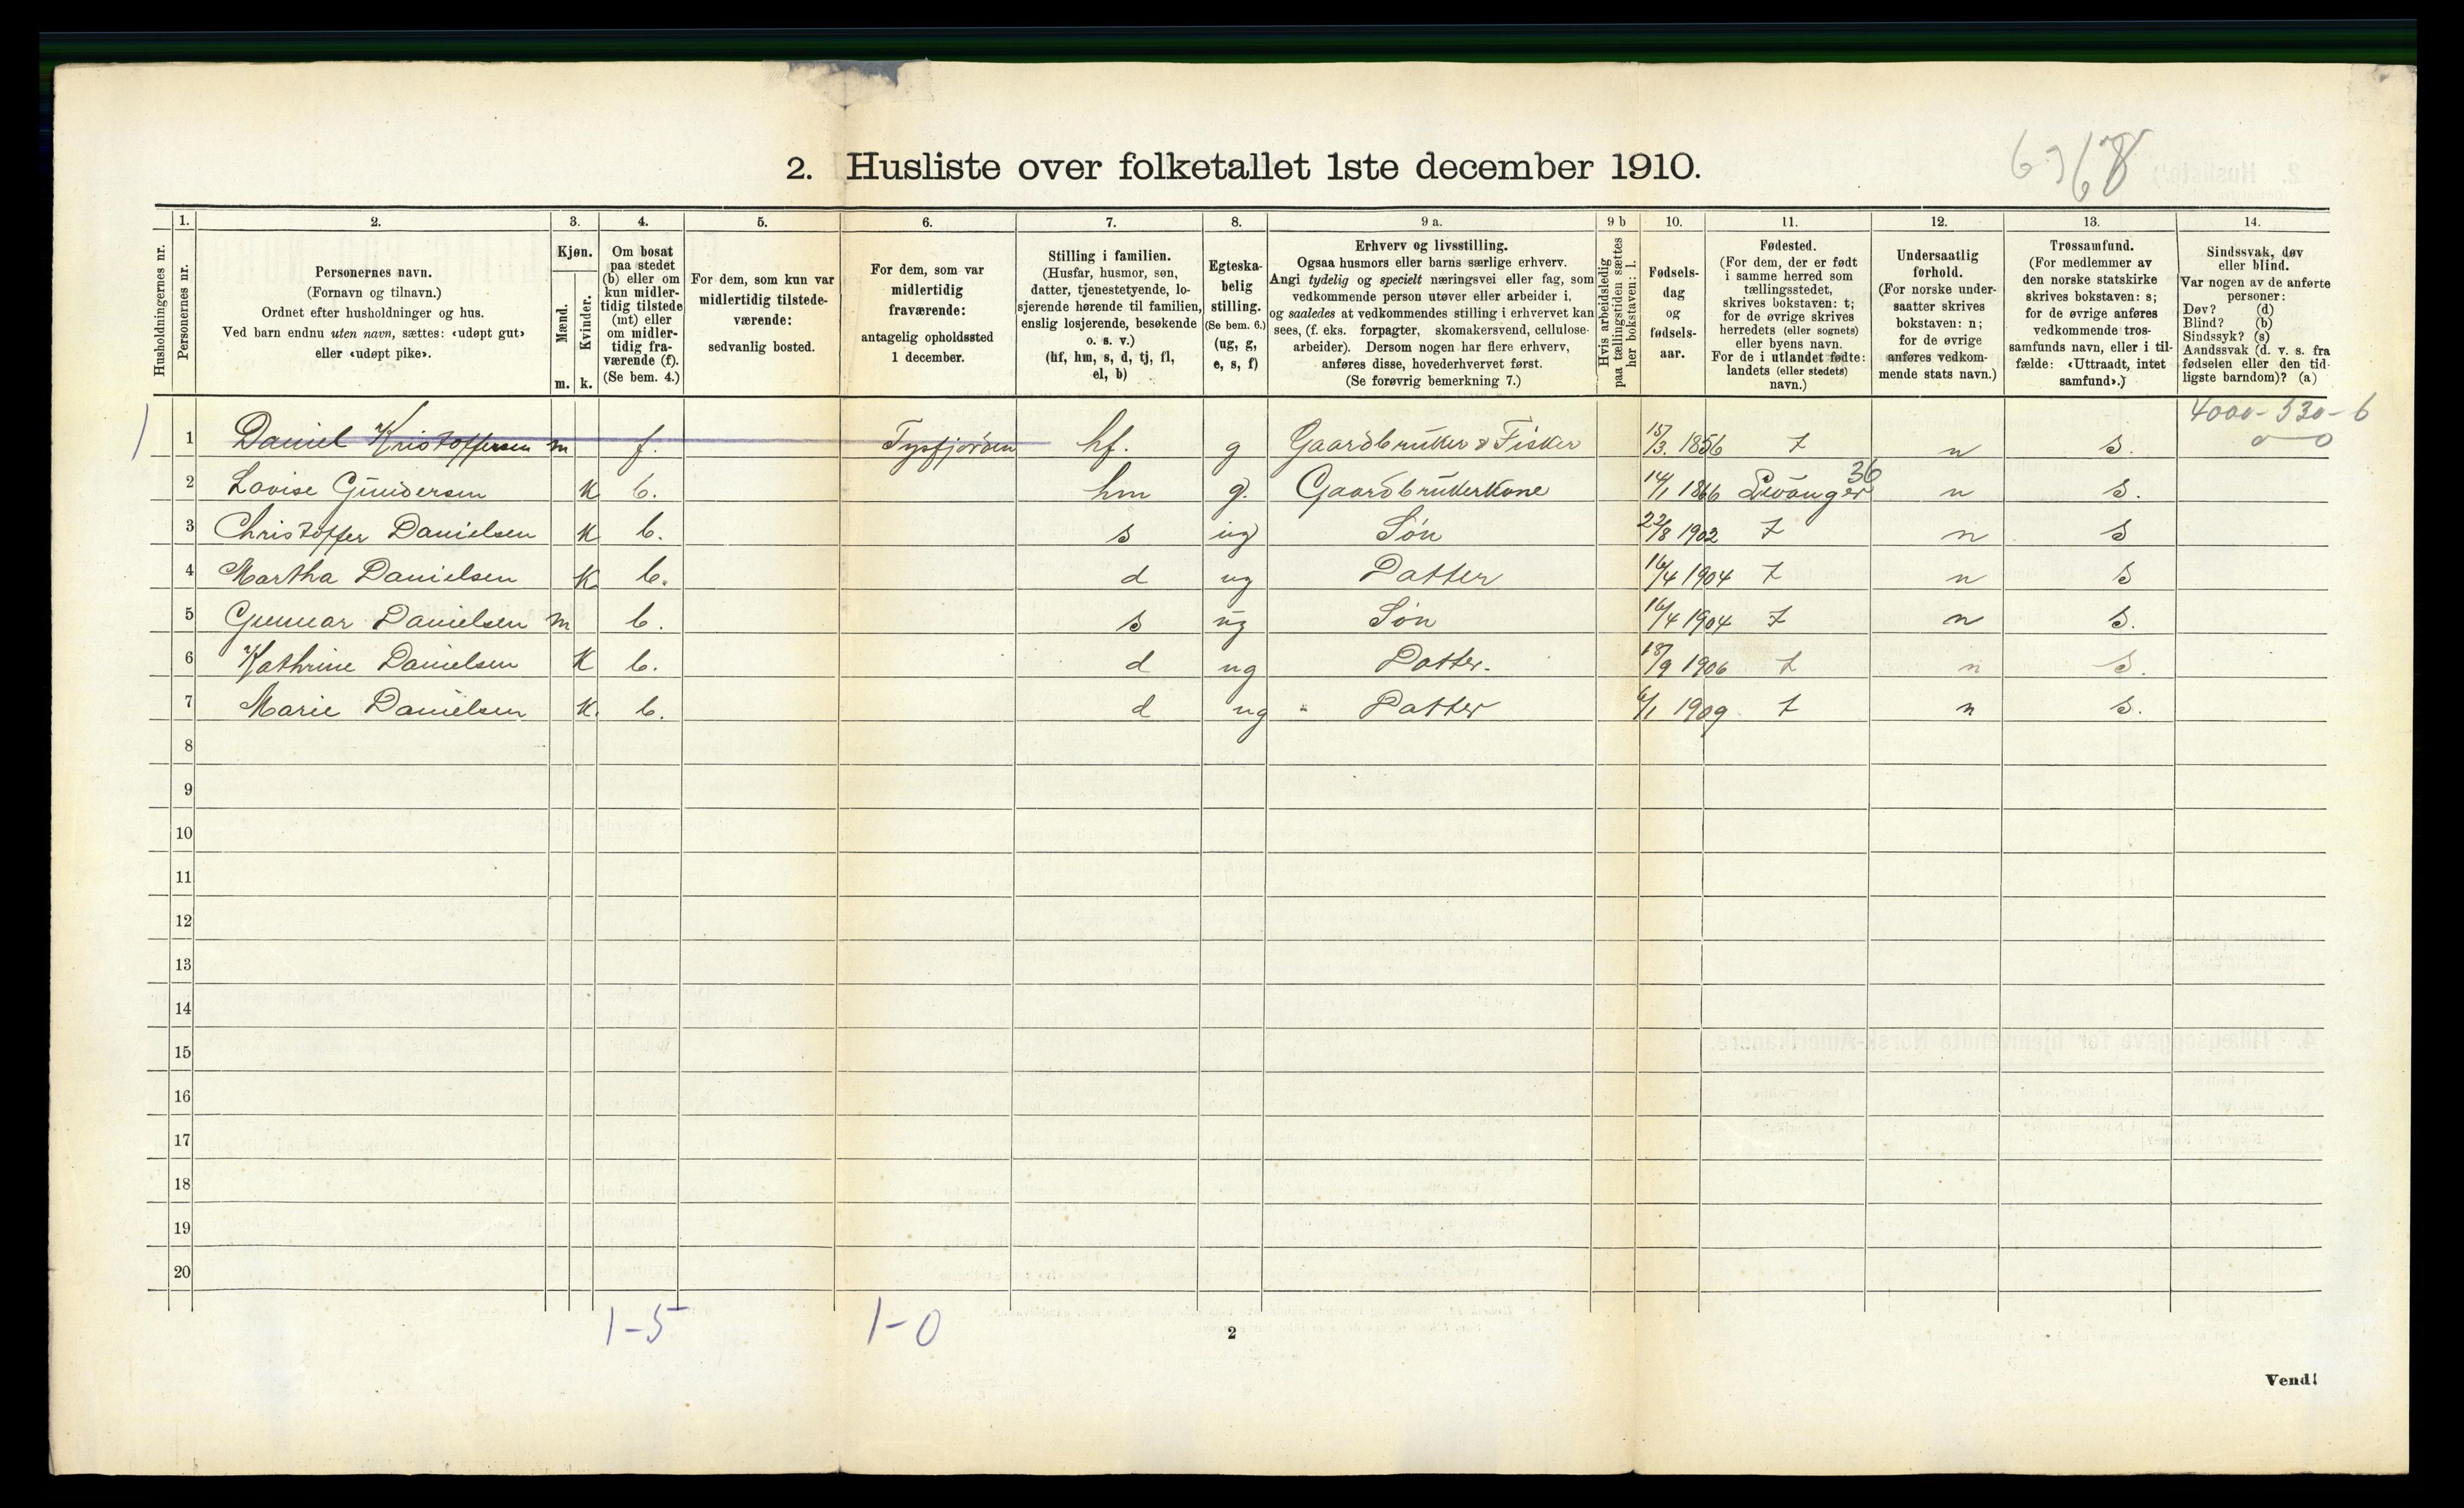 2. Husliste over folketallet 1ste december 1910.
6768
1. 2. 3. 4. 5. 6. 7. 8. 9 a. 9 b 10. 11. 12. 13. 14.
Husholdningernes nr.
Personernes nr.
Personernes navn.
(Fornavn og tilnavn.)
Ordnet efter husholdninger og hus.
Ved barn endnu uten navn, sættes: «udøpt gut»
eller «udøpt pike».
Kjøn.
Mænd.
Kvinder.
m. k.
Om bosat
paa stedet
(b) eller om
kun midler-
tidig tilstede
(mt) eller
om midler-
tidig fra-
værende (f).
(Se bem. 4.)
For dem, som kun var
midlertidig tilstede-
værende:
sedvanlig bosted.
For dem, som var
midlertidig
fraværende:
antagelig opholdssted
1 december.
Stilling i familien.
(Husfar, husmor, søn,
datter, tjenestetyende, lo-
sjerende hørende til familien,
enslig losjerende, besøkende
o. s. v.)
(hf, hm, s, d, tj, fl,
el, b)
Egteska-
belig
stilling.
(Se bem. 6.)
(ug, g,
e, s, f)
Erhverv og livsstilling.
Ogsaa husmors eller barns særlige erhverv.
Angi tydelig og specielt næringsvei eller fag, som
vedkommende person utøver eller arbeider i,
og saaledes at vedkommendes stilling i erhvervet kan
sees, (f. eks. forpagter, skomakersvend, cellulose-
arbeider). Dersom nogen har flere erhverv,
anføres disse, hovederhvervet først.
(Se forøvrig bemerkning 7.)
Hvis arbeidsledig
paa tællingstiden sættes
her bokstaven: l.
Fødsels-
dag
og
fødsels-
aar.
Fødested.
(For dem, der er født
i samme herred som
tællingsstedet,
skrives bokstaven: t;
for de øvrige skrives
herredets (eller sognets)
eller byens navn.
For de i utlandet fødte:
landets (eller stedets)
navn.)
Undersaatlig
forhold.
(For norske under-
saatter skrives
bokstaven: n;
for de øvrige
anføres vedkom-
mende stats navn.)
Trossamfund.
(For medlemmer av
den norske statskirke
skrives bokstaven: s;
for de øvrige anføres
vedkommende tros-
samfunds navn, eller i til-
fælde: «Uttraadt, intet
samfund».)
Sindssvak, døv
eller blind.
Var nogen av de anførte
personer:
Døv? (d)
Blind? (b)
Sindssyk? (s)
Aandssvak (d. v. s. fra
fødselen eller den tid-
ligste barndom)? (a)
4000-530-6
0-0
1 1 Daniel Kristoffersen m f. Tysfjorden hf. g Gaardbruker & Fisker 15/3. 1856 t n s.
2 Lovise Gundersen K b. hm g. Gaardbrukerkone 14/1 1866 Levanger 36 n s.
3 Christoffer Danielsen K b. s ug Søn 22/8 1902 t n s
4 Martha Danielsen K b. d ug Datter 16/4 1904 t n s
5 Gunnar Danielsen m b. s ug Søn 16/4 1904 t n s.
6 Kathrine Danielsen K b. d ug Datter. 18/9 1906 t n s.
7 Marie Danielsen K. b. d ug Datter 6/1 1909 t n s.
8
9
10
11
12
13
14
15
16
17
18
19
20
1-5 1-0
2
Vend!